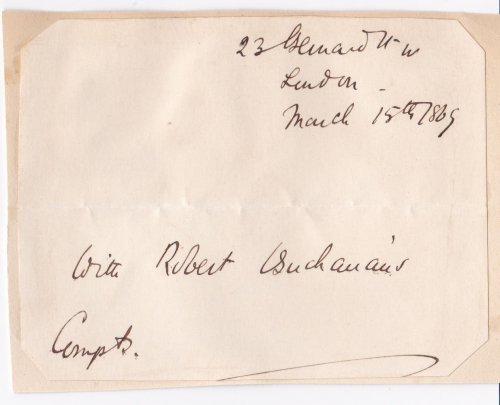 23 Bernard St. W
London -
March 15th 1869
With Robert Buchanan's
Compts.